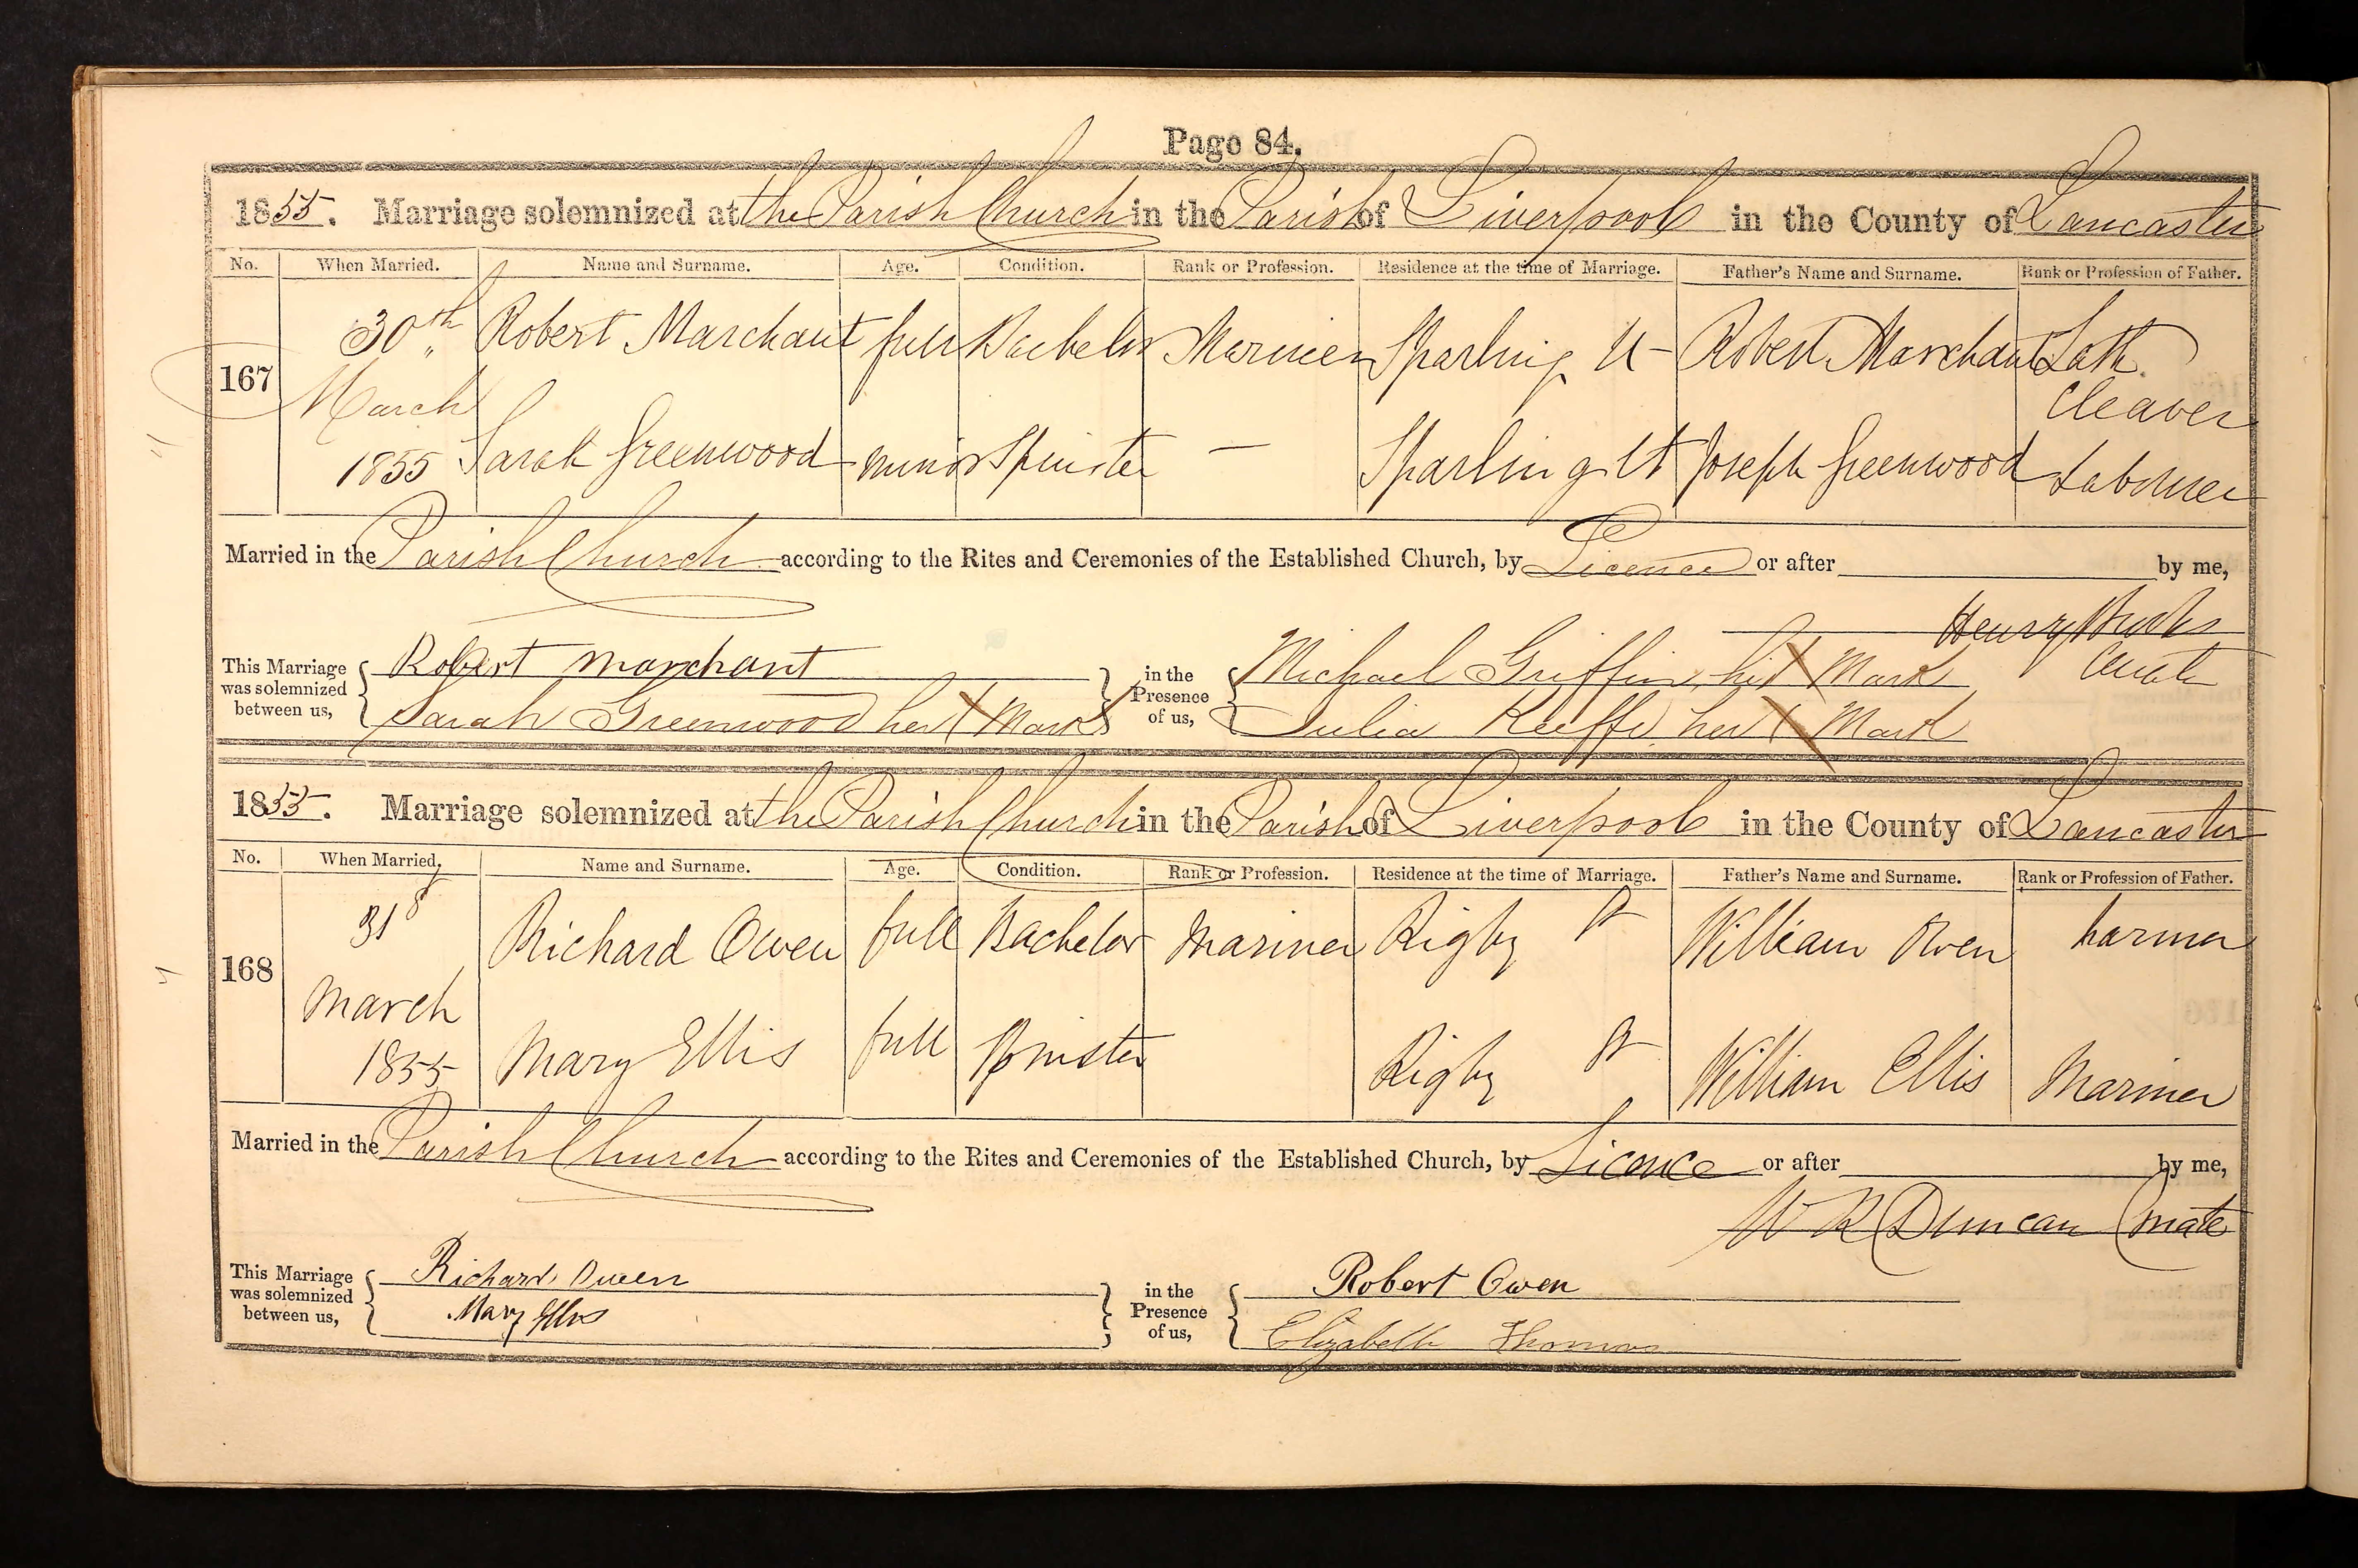 Page 84.
1855. Marriage solemnized at the Parish Church in the Parish of Liverpool in the County of Lancaster
No. When Married. Name and Surname. Age. Condition. Rank or Profession. Residence at the time of Marriage. Father's Name and Surname. Rank or Profession of Father.
167 30th March 1855 Robert Marchant full Bachelor Mariner Sparling St Robert Marchant Lath Cleaver
Sarah Greenwood minor Spinster — Sparling St Joseph Greenwood Labourer
Married in the Parish Church according to the Rites and Ceremonies of the Established Church, by Licence or after by me,
Henry
Curate
This Marriage was solemnized between us, Robert Marchant in the Presence of us, Michael Griffin, his X Mark
Sarah Greenwood her X Mark Julia Keeffe her X Mark
1855. Marriage solemnized at the Parish Church in the Parish of Liverpool in the County of Lancaster
No. When Married. Name and Surname. Age. Condition. Rank or Profession. Residence at the time of Marriage. Father's Name and Surname. Rank or Profession of Father.
168 31st March 1855 Richard Owen full Bachelor Mariner Rigby St William Owen Farmer
Mary Ellis full Spinster Rigby St William Ellis Mariner
Married in the Parish Church according to the Rites and Ceremonies of the Established Church, by Licence or after by me,
W R Duncan Curate
This Marriage was solemnized between us, Richard Owen in the Presence of us, Robert Owen
Mary Ellis Elizabeth Thomas